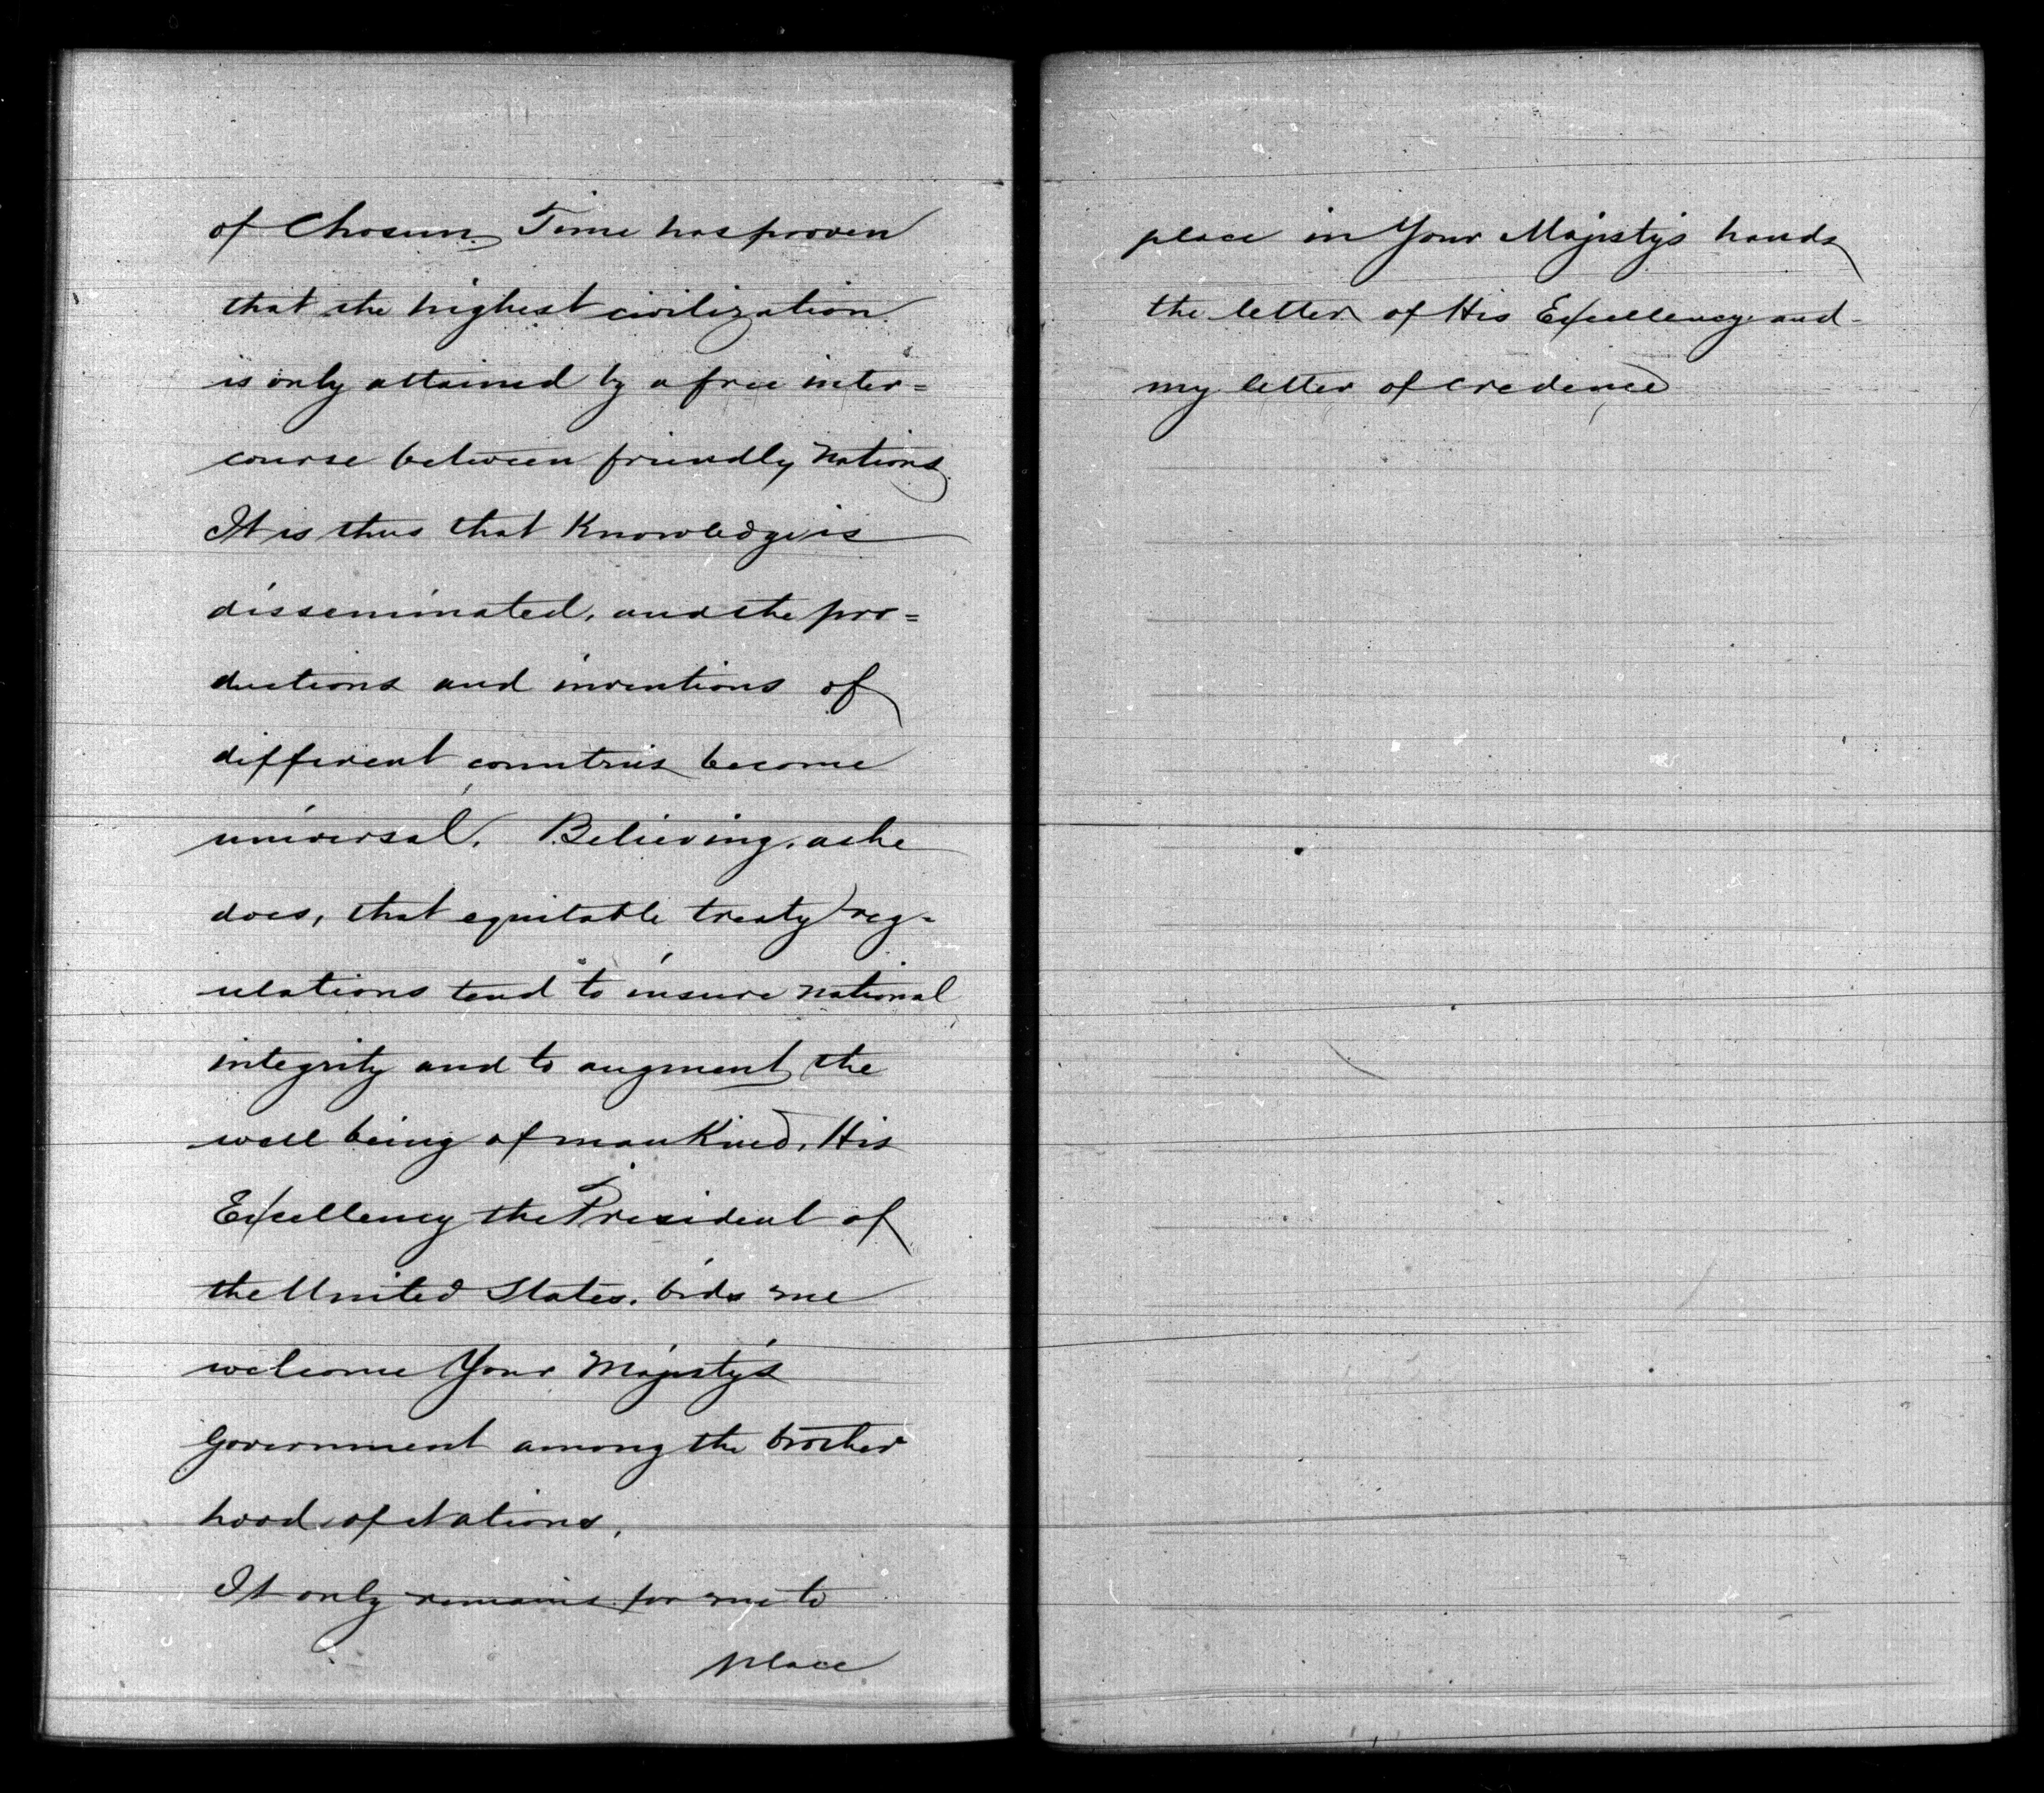 of Chosun. Time has proven
that the highest civilization
is only attained by a free inter=
course between friendly nations.
It is thus that Knowledge is
disseminated, and the pro=
ductions and inventions of
different countries become
universal. Believing, as he
does, that equitable treaty reg=
ulations tend to insure national
integrity and to augment the
well being of mankind, His
Excellency the President of
the United States, bids me
welcome Your Majesty's
Government among the brother
hood of Nations.
It only remains for me to
place
place in Your Majesty's hands
the letter of His Excellency and
my letter of credence